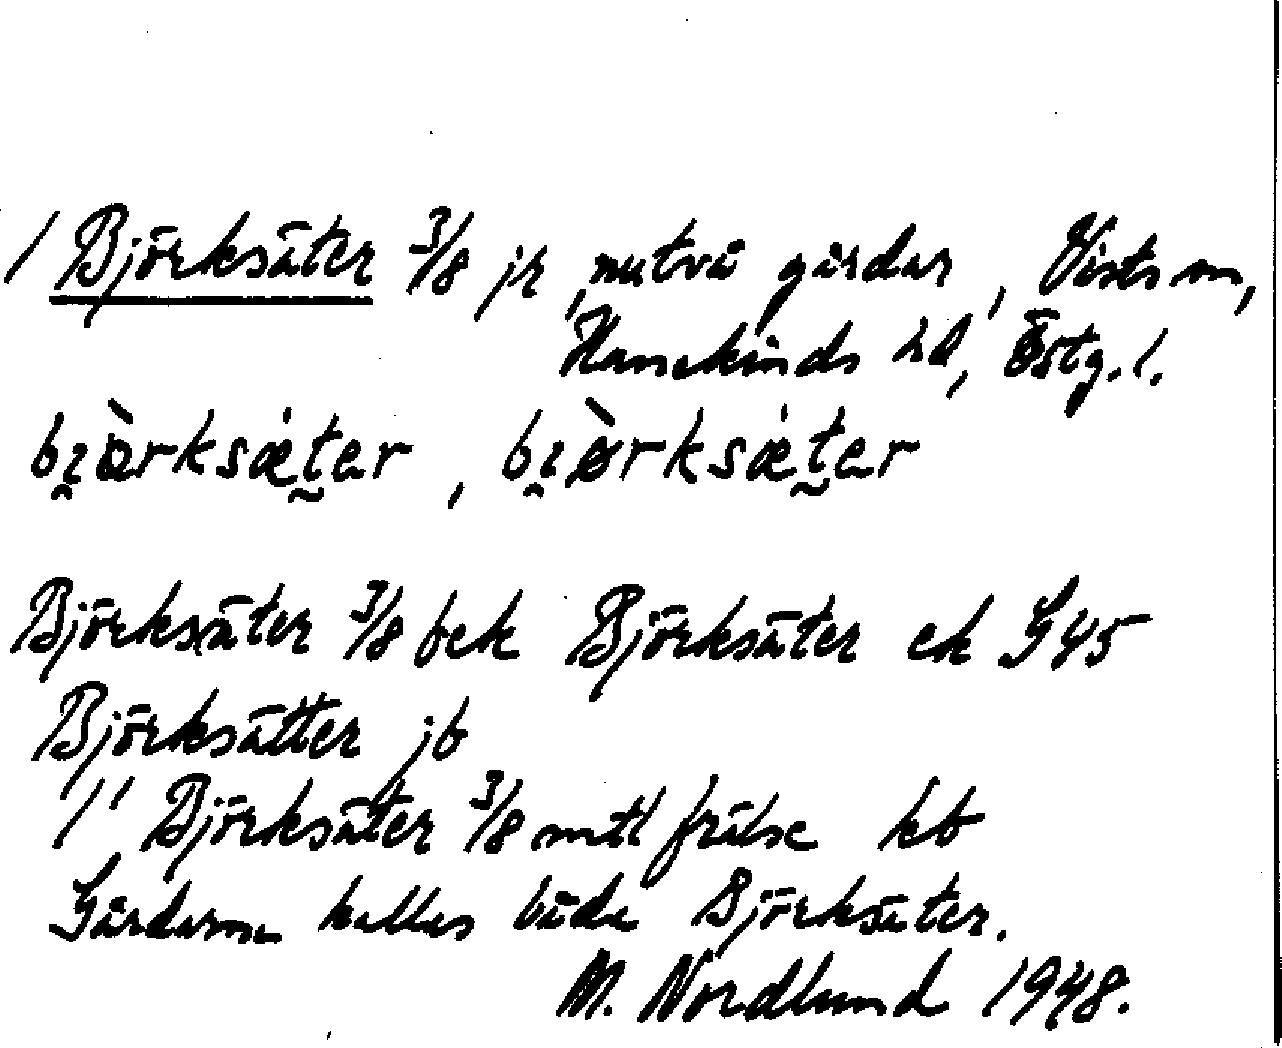 1 Björksäter 3/8 jr, nu två gårdar, Vists sn,
Hanekinds hd, Östg. l.
bi̯ὸrksǽt̰ar, bi̯ø̀rksǽt̰ar
Björksäter 3/8 bek Björksäter ek G45
Björksätter jb
1' Björksäter 3/8 mtl frälse kb
Gårdarna kallas båda Björksäter.
M. Nordlund 1948.